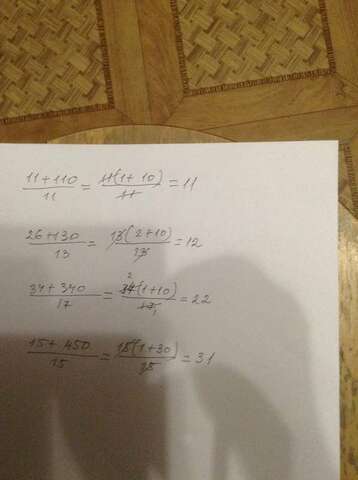 11+110/11 = 11(1+10)/11 = 11
26+130/13 = 13(2+10)/13 = 12
34+340/17 = 2 34(1+10)/17 1 = 22
15+450/15 = 15(1+30)/15 = 31